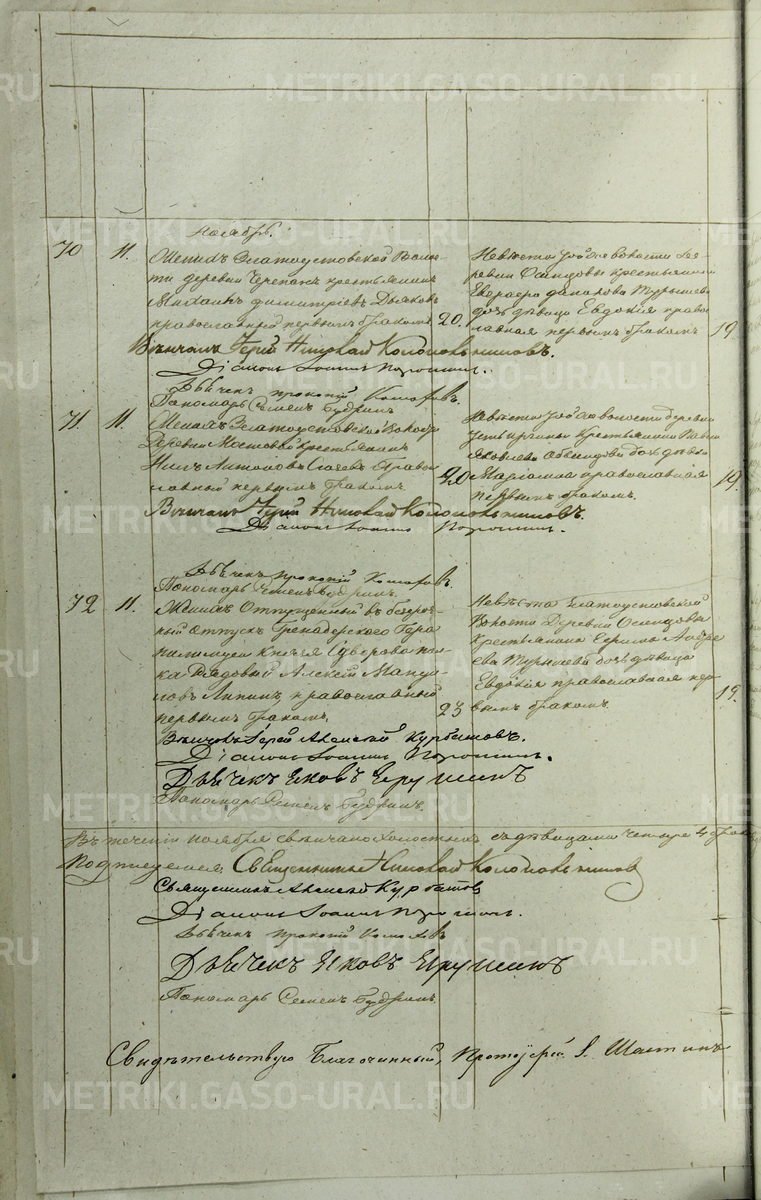 Ноябрь.
70
11.
Женихъ Златоустовской Волос
ти деревни Черепан крестьянинъ
Михаилъ Димитріевъ Дьяковъ
православный первымъ бракомъ
20.
Невѣста той же волости де
ревни Осинцовы крестьянина
Турышева
дочь дѣвица Евдокія право
славная первымъ бракомъ
19.
Вѣнчалъ Іерей Николай Колокольниковъ.
Діаконъ Іоаннъ Порошинъ.
Дьячекъ Прокопій Комаровъ.
Пономарь Семенъ Будринъ.
71.
11.
Женихъ Златоустовской Волости
Деревни крестьянинъ
Нилъ Антоновъ Право
славный первымъ бракомъ
20
Невѣста той же волости деревни
крестьянина
Яковлева дочь дѣвица
Маріамна православная
первымъ бракомъ.
19.
Вѣнчалъ Іерей Николай Колокольниковъ.
Діаконъ Іоаннъ Порошинъ.
Дьячекъ Прокопій Комаровъ.
Пономарь Семенъ Будринъ.
72
11.
Женихъ Отпущенный въ безсроч
ный отпускъ Гренадерского Гене
ралиссимуса Князя Суворова пол
ка Рядовый Алексѣй
православный
первымъ бракомъ,
23
Невѣста Златоустовской
Волости Деревни Осинцовы
крестьянина Андре
ева Турышева дочь дѣвица
Евдокія православная пер
вымъ бракомъ.
19.
Вѣнчалъ Іерей Алексѣй Курбатовъ.
Діаконъ Іоаннъ Порошинъ.
Дьячекъ Яковъ
Пономарь Семенъ Будринъ.
Въ теченіи ноября свѣнчано холостыхъ съ дѣвицами четыре 4 брака
Священникъ Николай Колокольниковъ
Священникъ Алексѣй Курбатовъ
Діаконъ Іоаннъ Порошинъ.
Дьячекъ Прокопій Комаровъ
Дьячекъ Яковъ
Пономарь Семенъ Будринъ.
Свидѣтельствую Благочинный, Протоіерей І. Шастинъ
METRIKI.GASO-URAL.RU